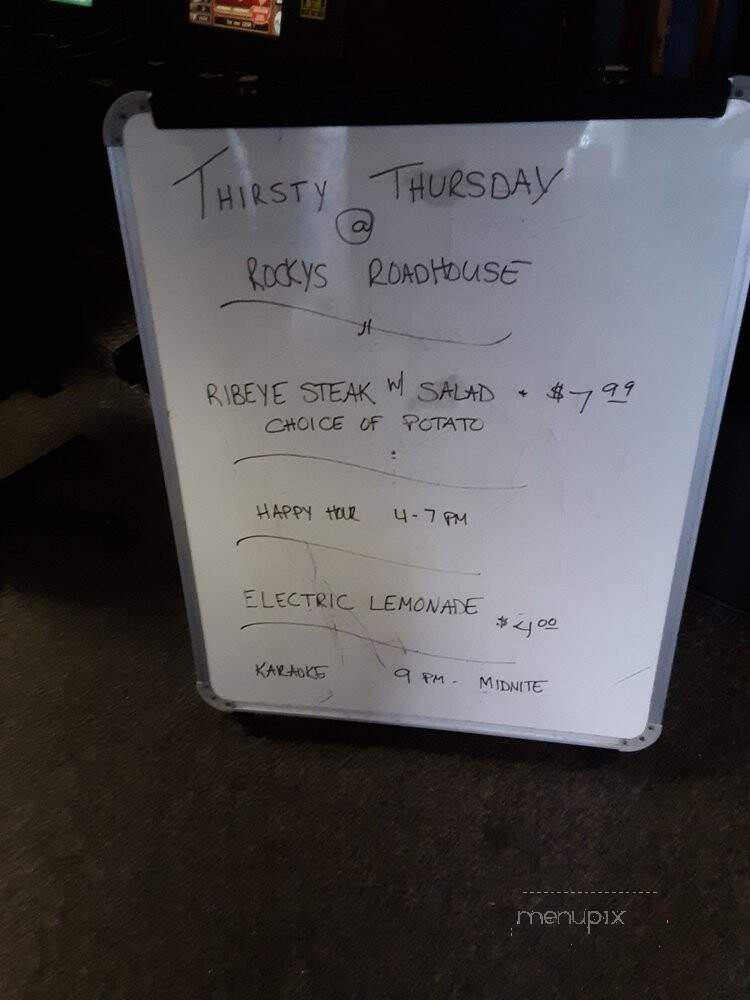 THIRSTY THURSDAY
@
ROCKYS ROADHOUSE
RIBEYE STEAK W/ SALAD • $7.99
CHOICE OF POTATO
HAPPY HOUR 4-7 PM
ELECTRIC LEMONADE $4.00
KARAOKE 9 PM - MIDNITE
menupix